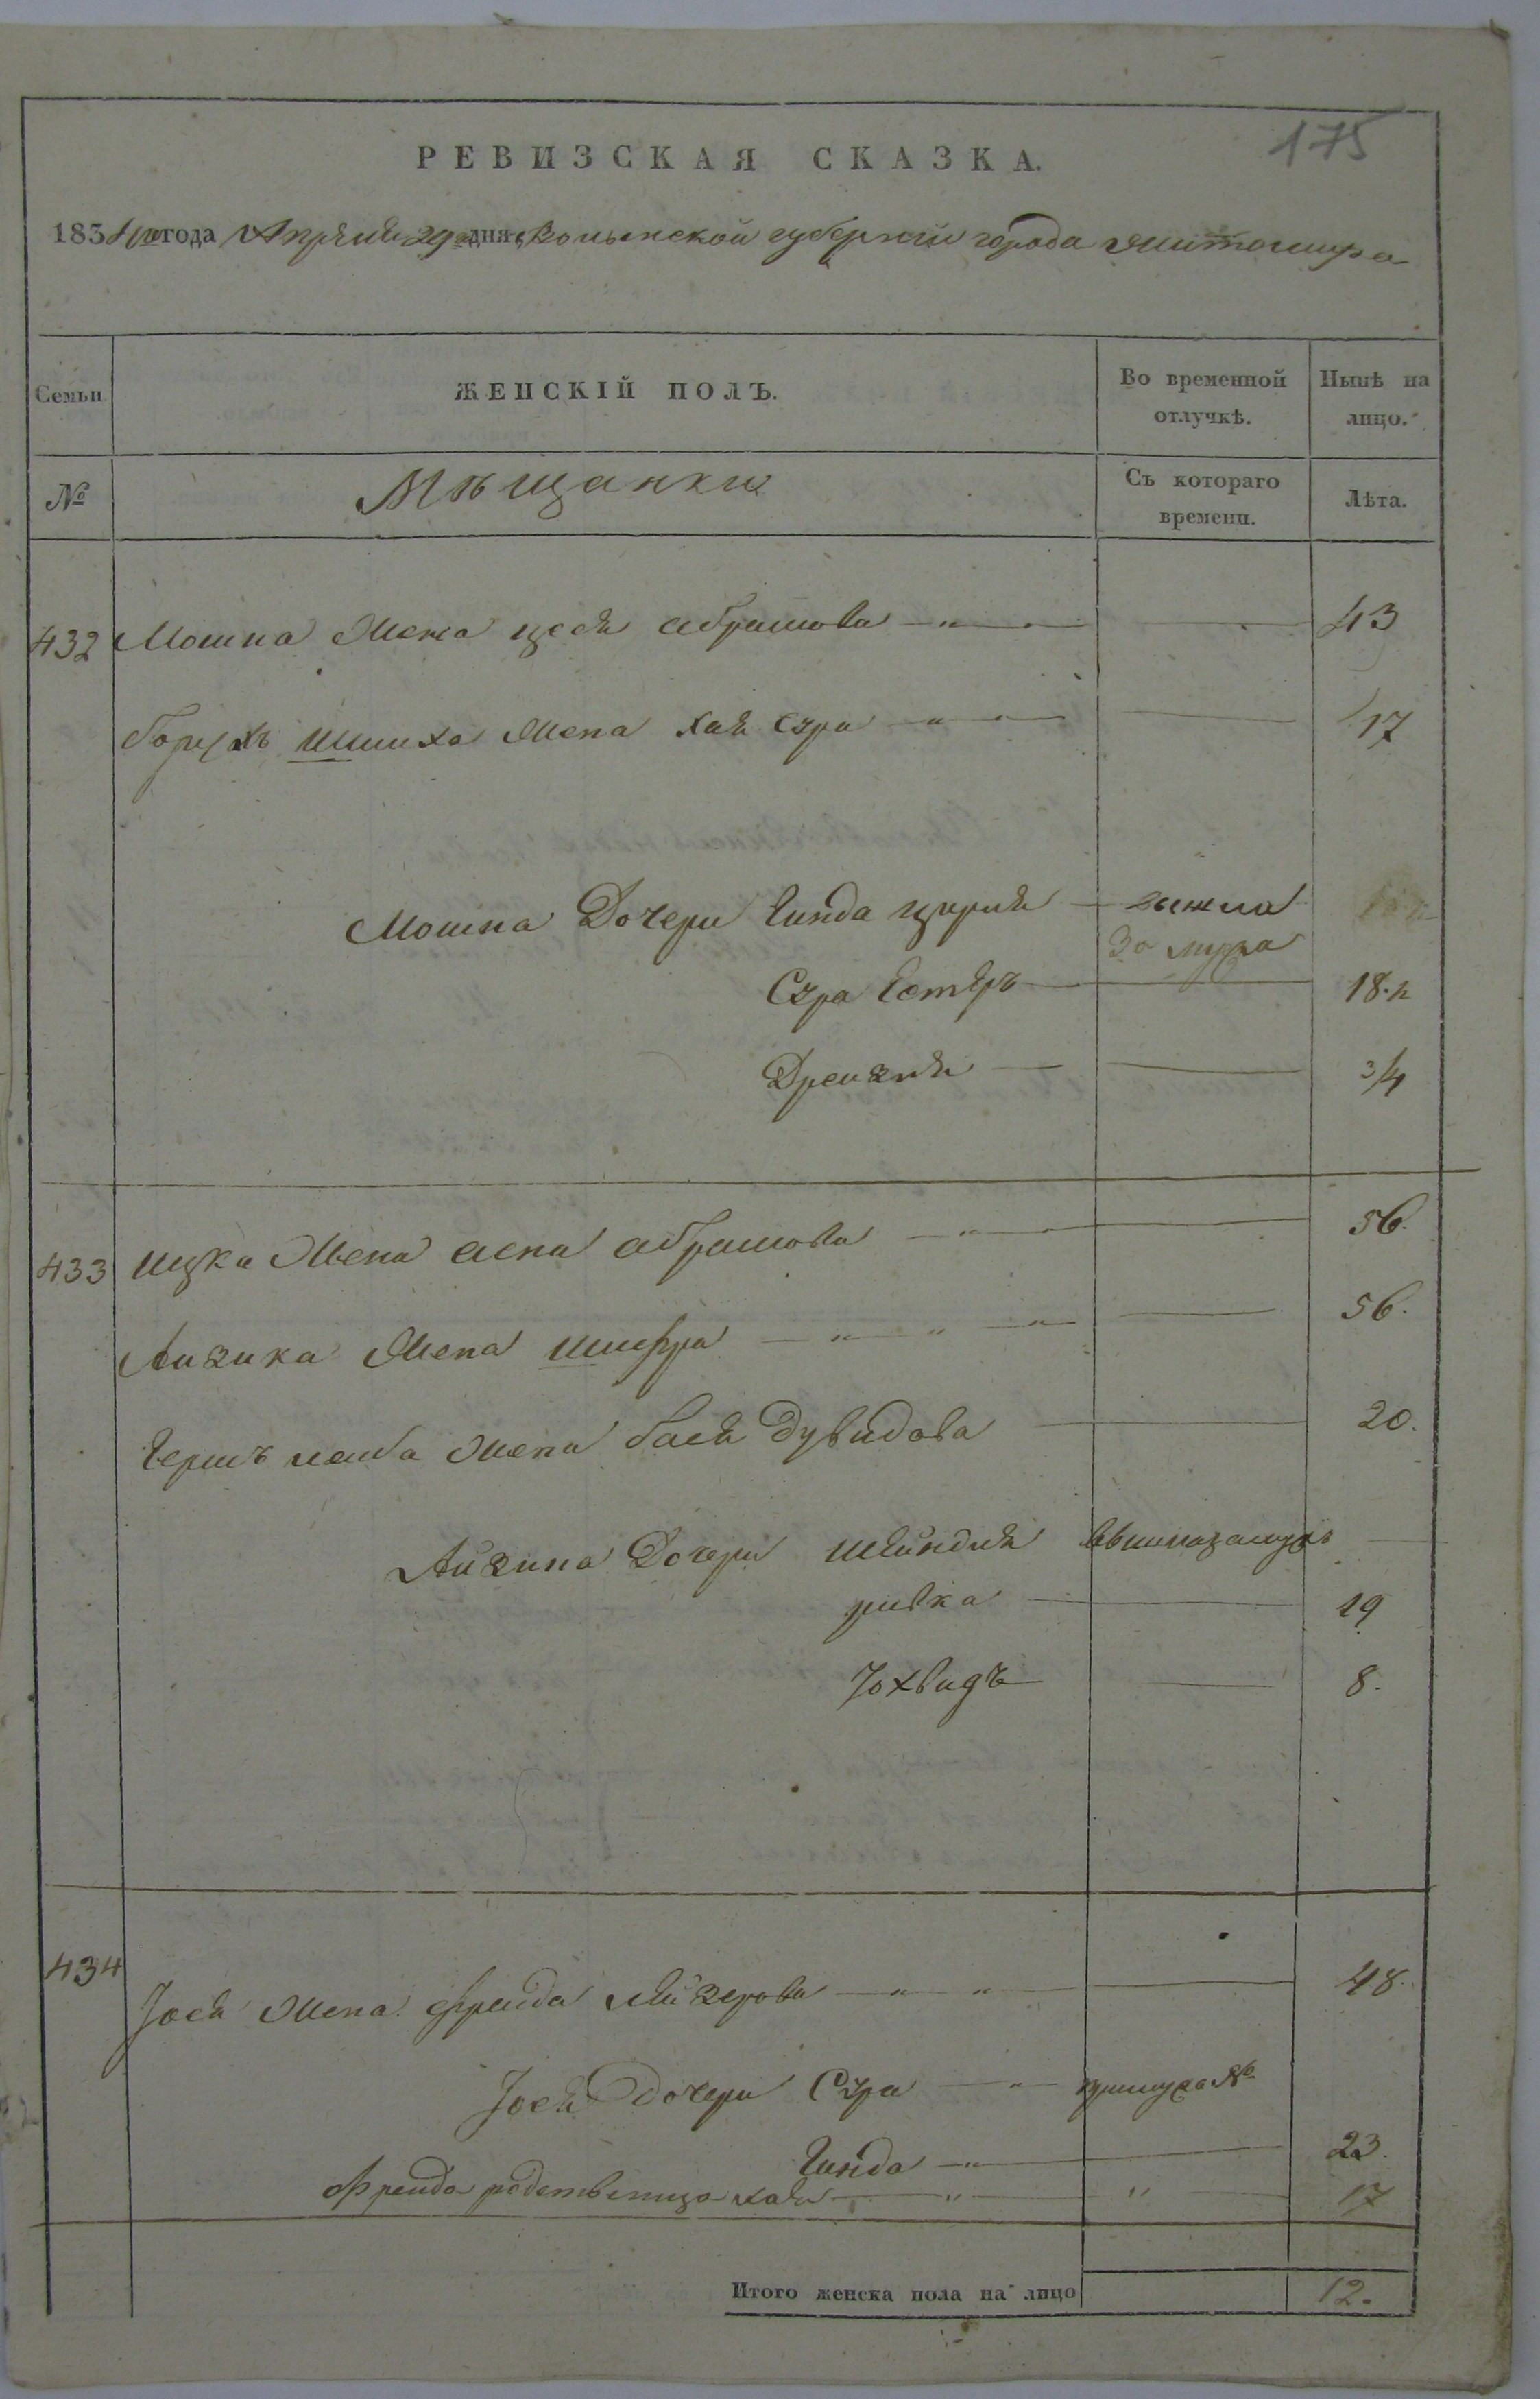 175
РЕВИЗСКАЯ СКАЗКА.
1834 го года Апреля 29 дня Волынской губернии города Житомира
Семьи ЖЕНСКІЙ ПОЛЪ. Во временной отлучкѣ. Нынѣ на лицо.
№ Мѣщанки Съ котораго времени. Лѣта.
432 Мошка жена песя абрамова 43
борухъ шлиоха жена хая сура 17
Мошка Дочери Гинда вышла
За мужа
Сура Естеръ 18.
Дрейзля 3/4
433 ицка жена хена абрамова 56.
Айзика жена шифра 56.
Гершъ лейба жена бася дувидова 20.
Айзика Дочери шейндля вышла замужъ
ривка 19
Іохвидъ 8.
434 Іося жена фрейда лейзерова 48.
Іося дочери Сура
Гинда 23.
Фрейда родственица хая 17
Итого женска пола на лицо 12.